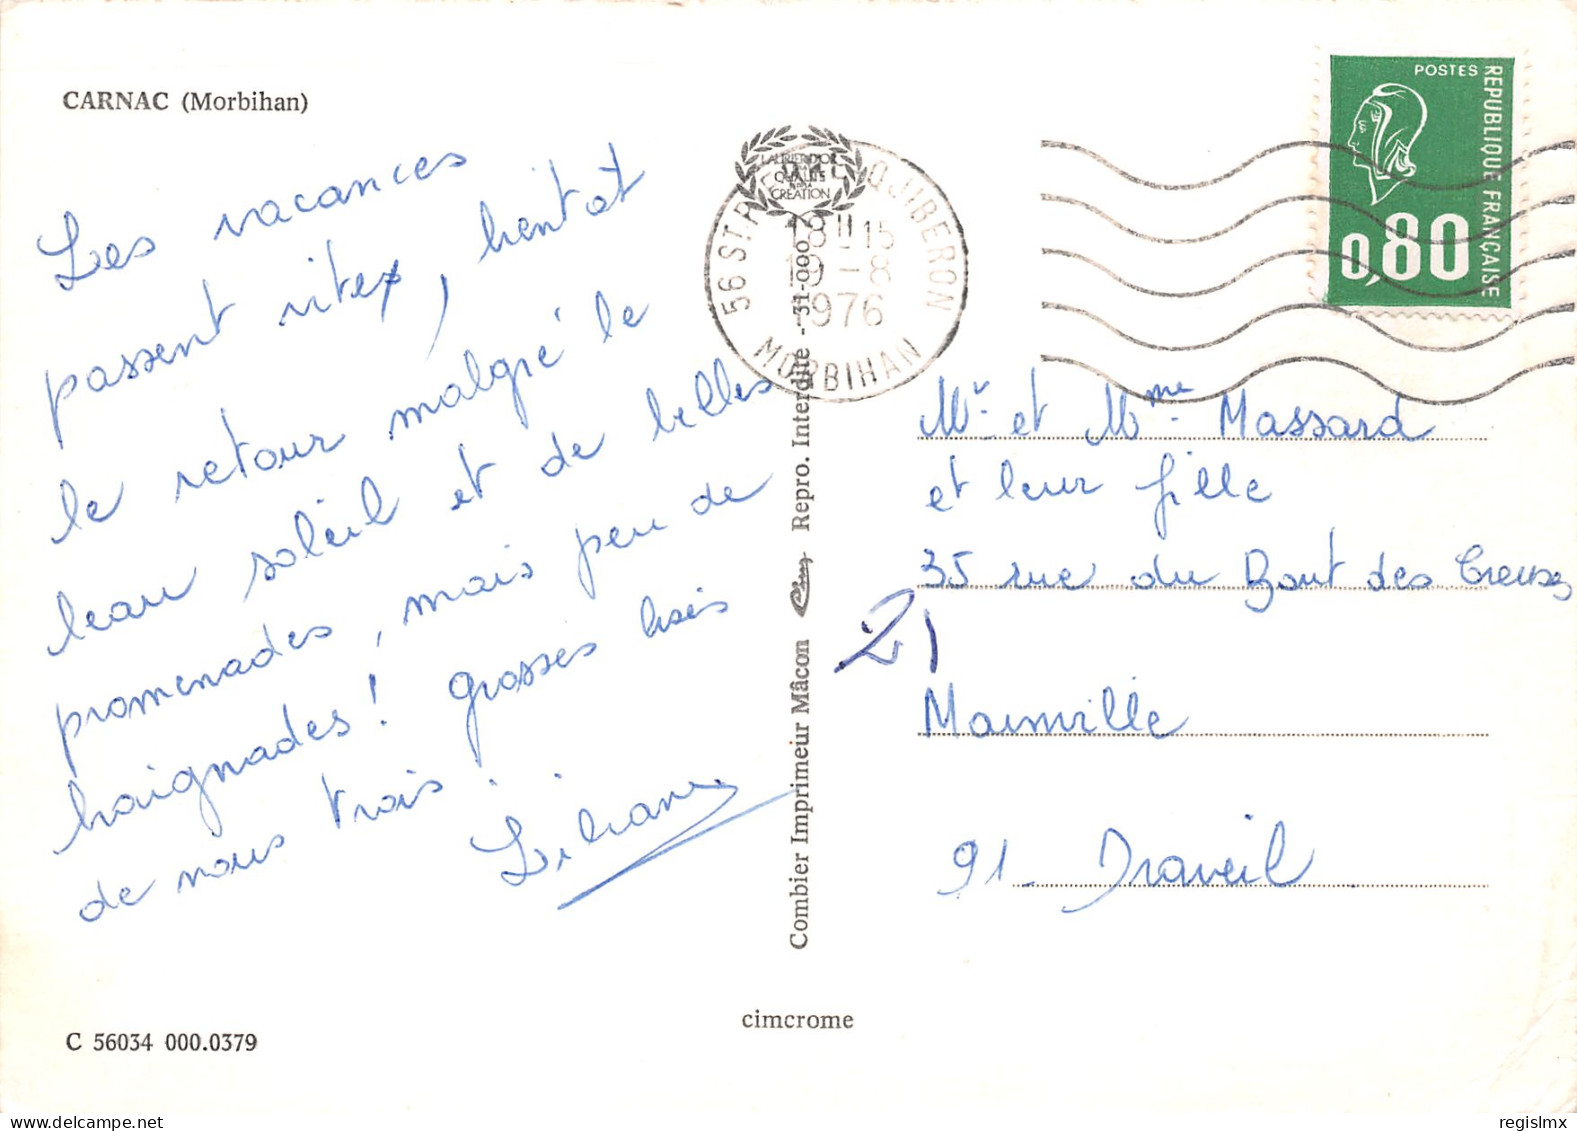 CARNAC (Morbihan)
Les vacances
passent vites, bientot
le retour malgré le
beau soleil et de belles
promenades, mais peu de
baignades! grosses bises
de nous trois.
Liliane
C 56034 000.0379
cimcrome
Combier Imprimeur Mâcon Repro. Interdite - 31-000
LAURIER D'OR
QUALITE
CREATION
56 ST.P QUIBERON
18-15
19-8
1976
MORBIHAN
POSTES
REPUBLIQUE FRANÇAISE
0,80
Mr et Mme Massard
et leur fille
35 rue du Bout des Creuses
21
Mainville
91 Draveil
regislmx
www.delcampe.net